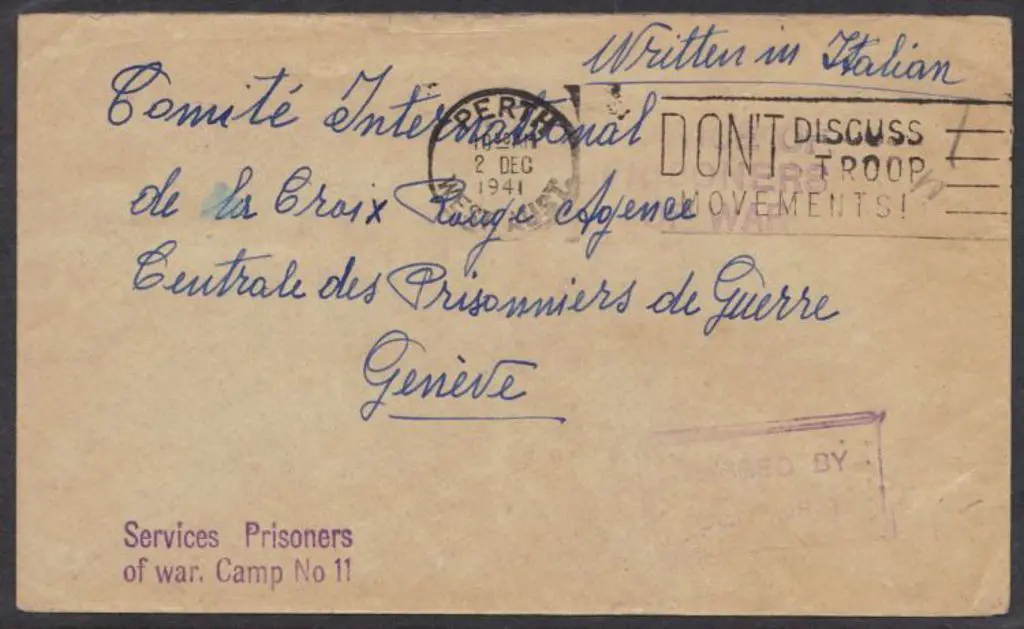 Written in Italian
Comité International
de la Croix Rouge Agence
Centrale des Prisonniers de Guerre
Genève
PERTH
2 DEC
1941
WEST. AUST.
DON'T DISCUSS
TROOP
MOVEMENTS!
WAR
BY
Services Prisoners
of war. Camp No 11